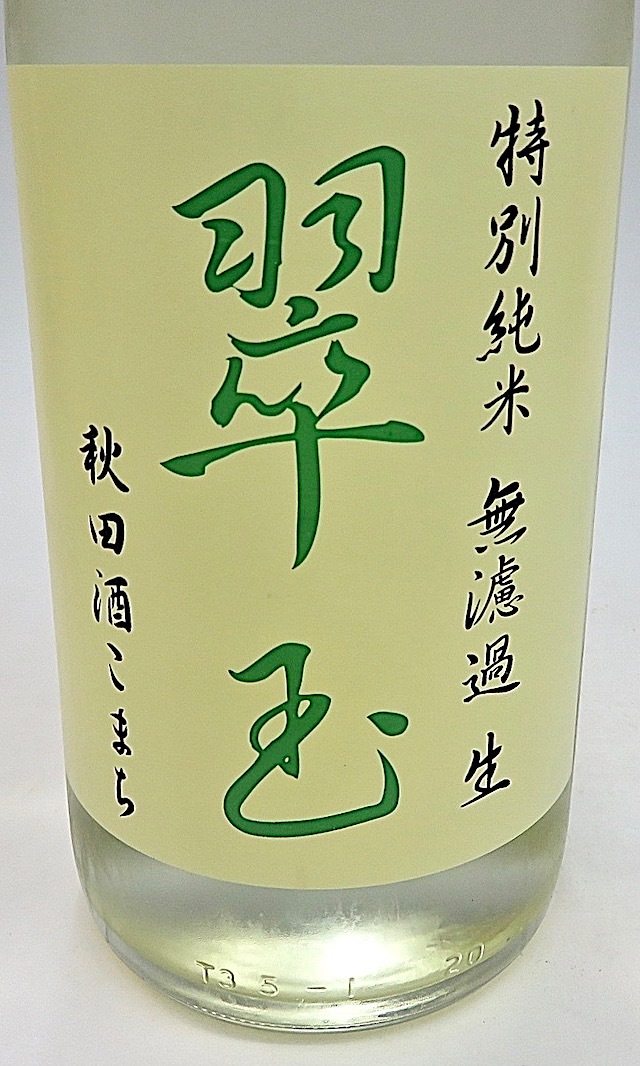 特別純米 無濾過 生
翠玉
秋田酒こまち
T35-1 20